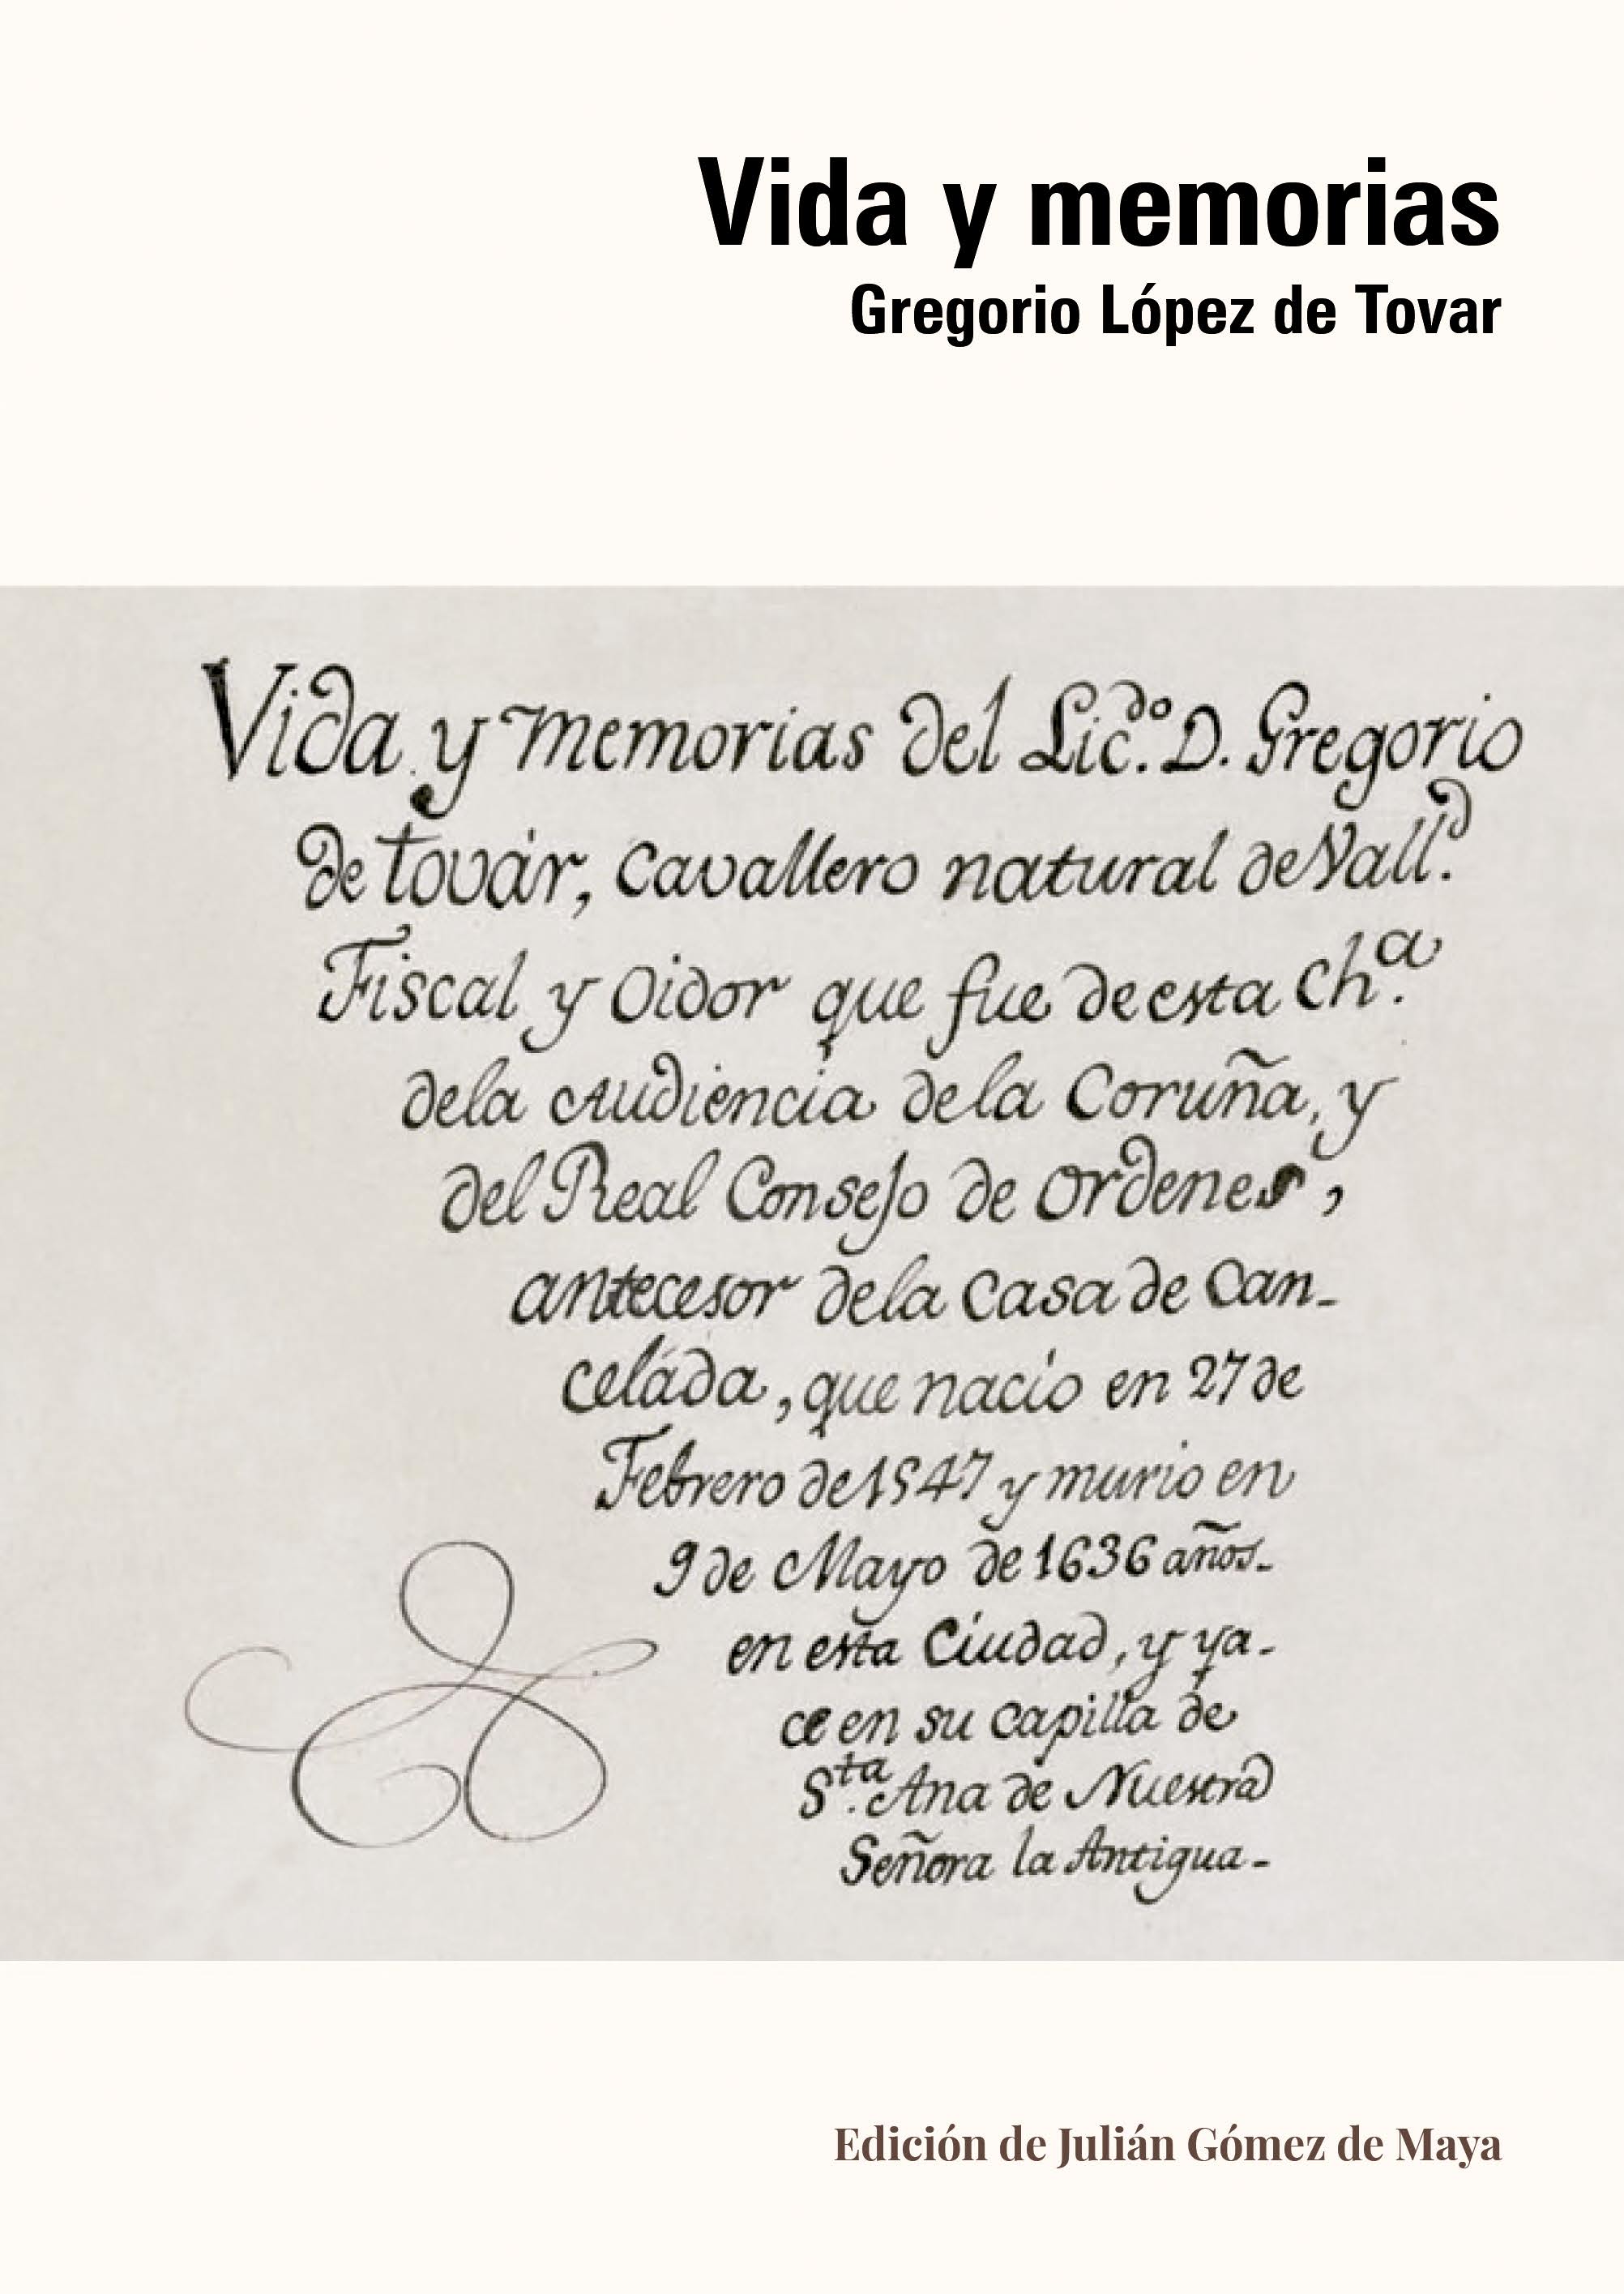 Vida y memorias
Gregorio López de Tovar
Vida y memorias del Lic.do D. Gregorio
de továr, Cavallero natural de Vall.d
Fiscal y Oidor que fue de esta Ch.a
dela Audiencia dela Coruña, y
del Real Consejo de Ordenes,
antecesor dela Casa de Can-
celáda, que nacio en 27 de
Febrero de 1547 y murio en
9 de Mayo de 1636 años-
en esta Ciudad, y ya-
ce en su capilla de
S.ta Ana de Nuestra
Señora la Antigua-
Edición de Julián Gómez de Maya